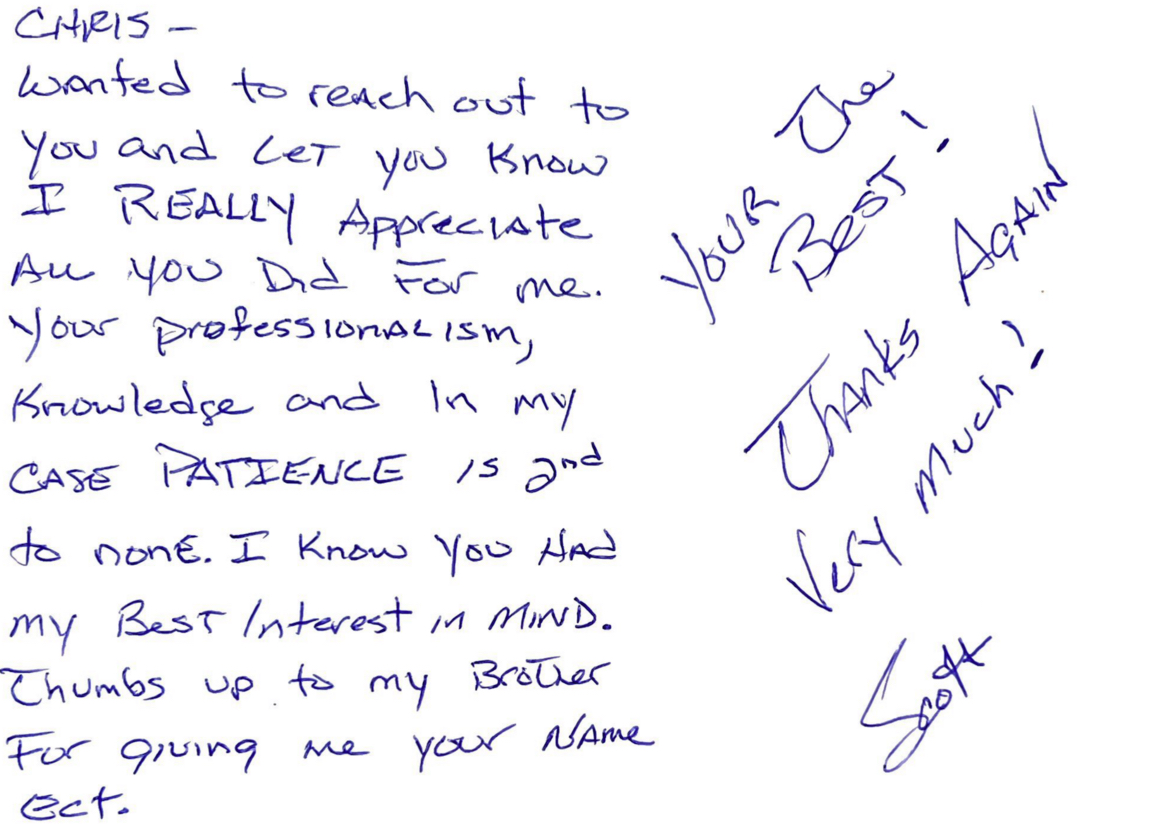 CHRIS -
Wanted to reach out to
You and LET you Know
I REALLY Appreciate
All you Did For me.
Your professionalism,
Knowledge and In my
CASE PATIENCE is 2nd
to none. I Know you Had
my Best Interest in MIND.
Thumbs up to my Brother
For giving me your NAme
Ect.
YOUR The
BEST!
THANKS AGAIN
Very Much!
Scott